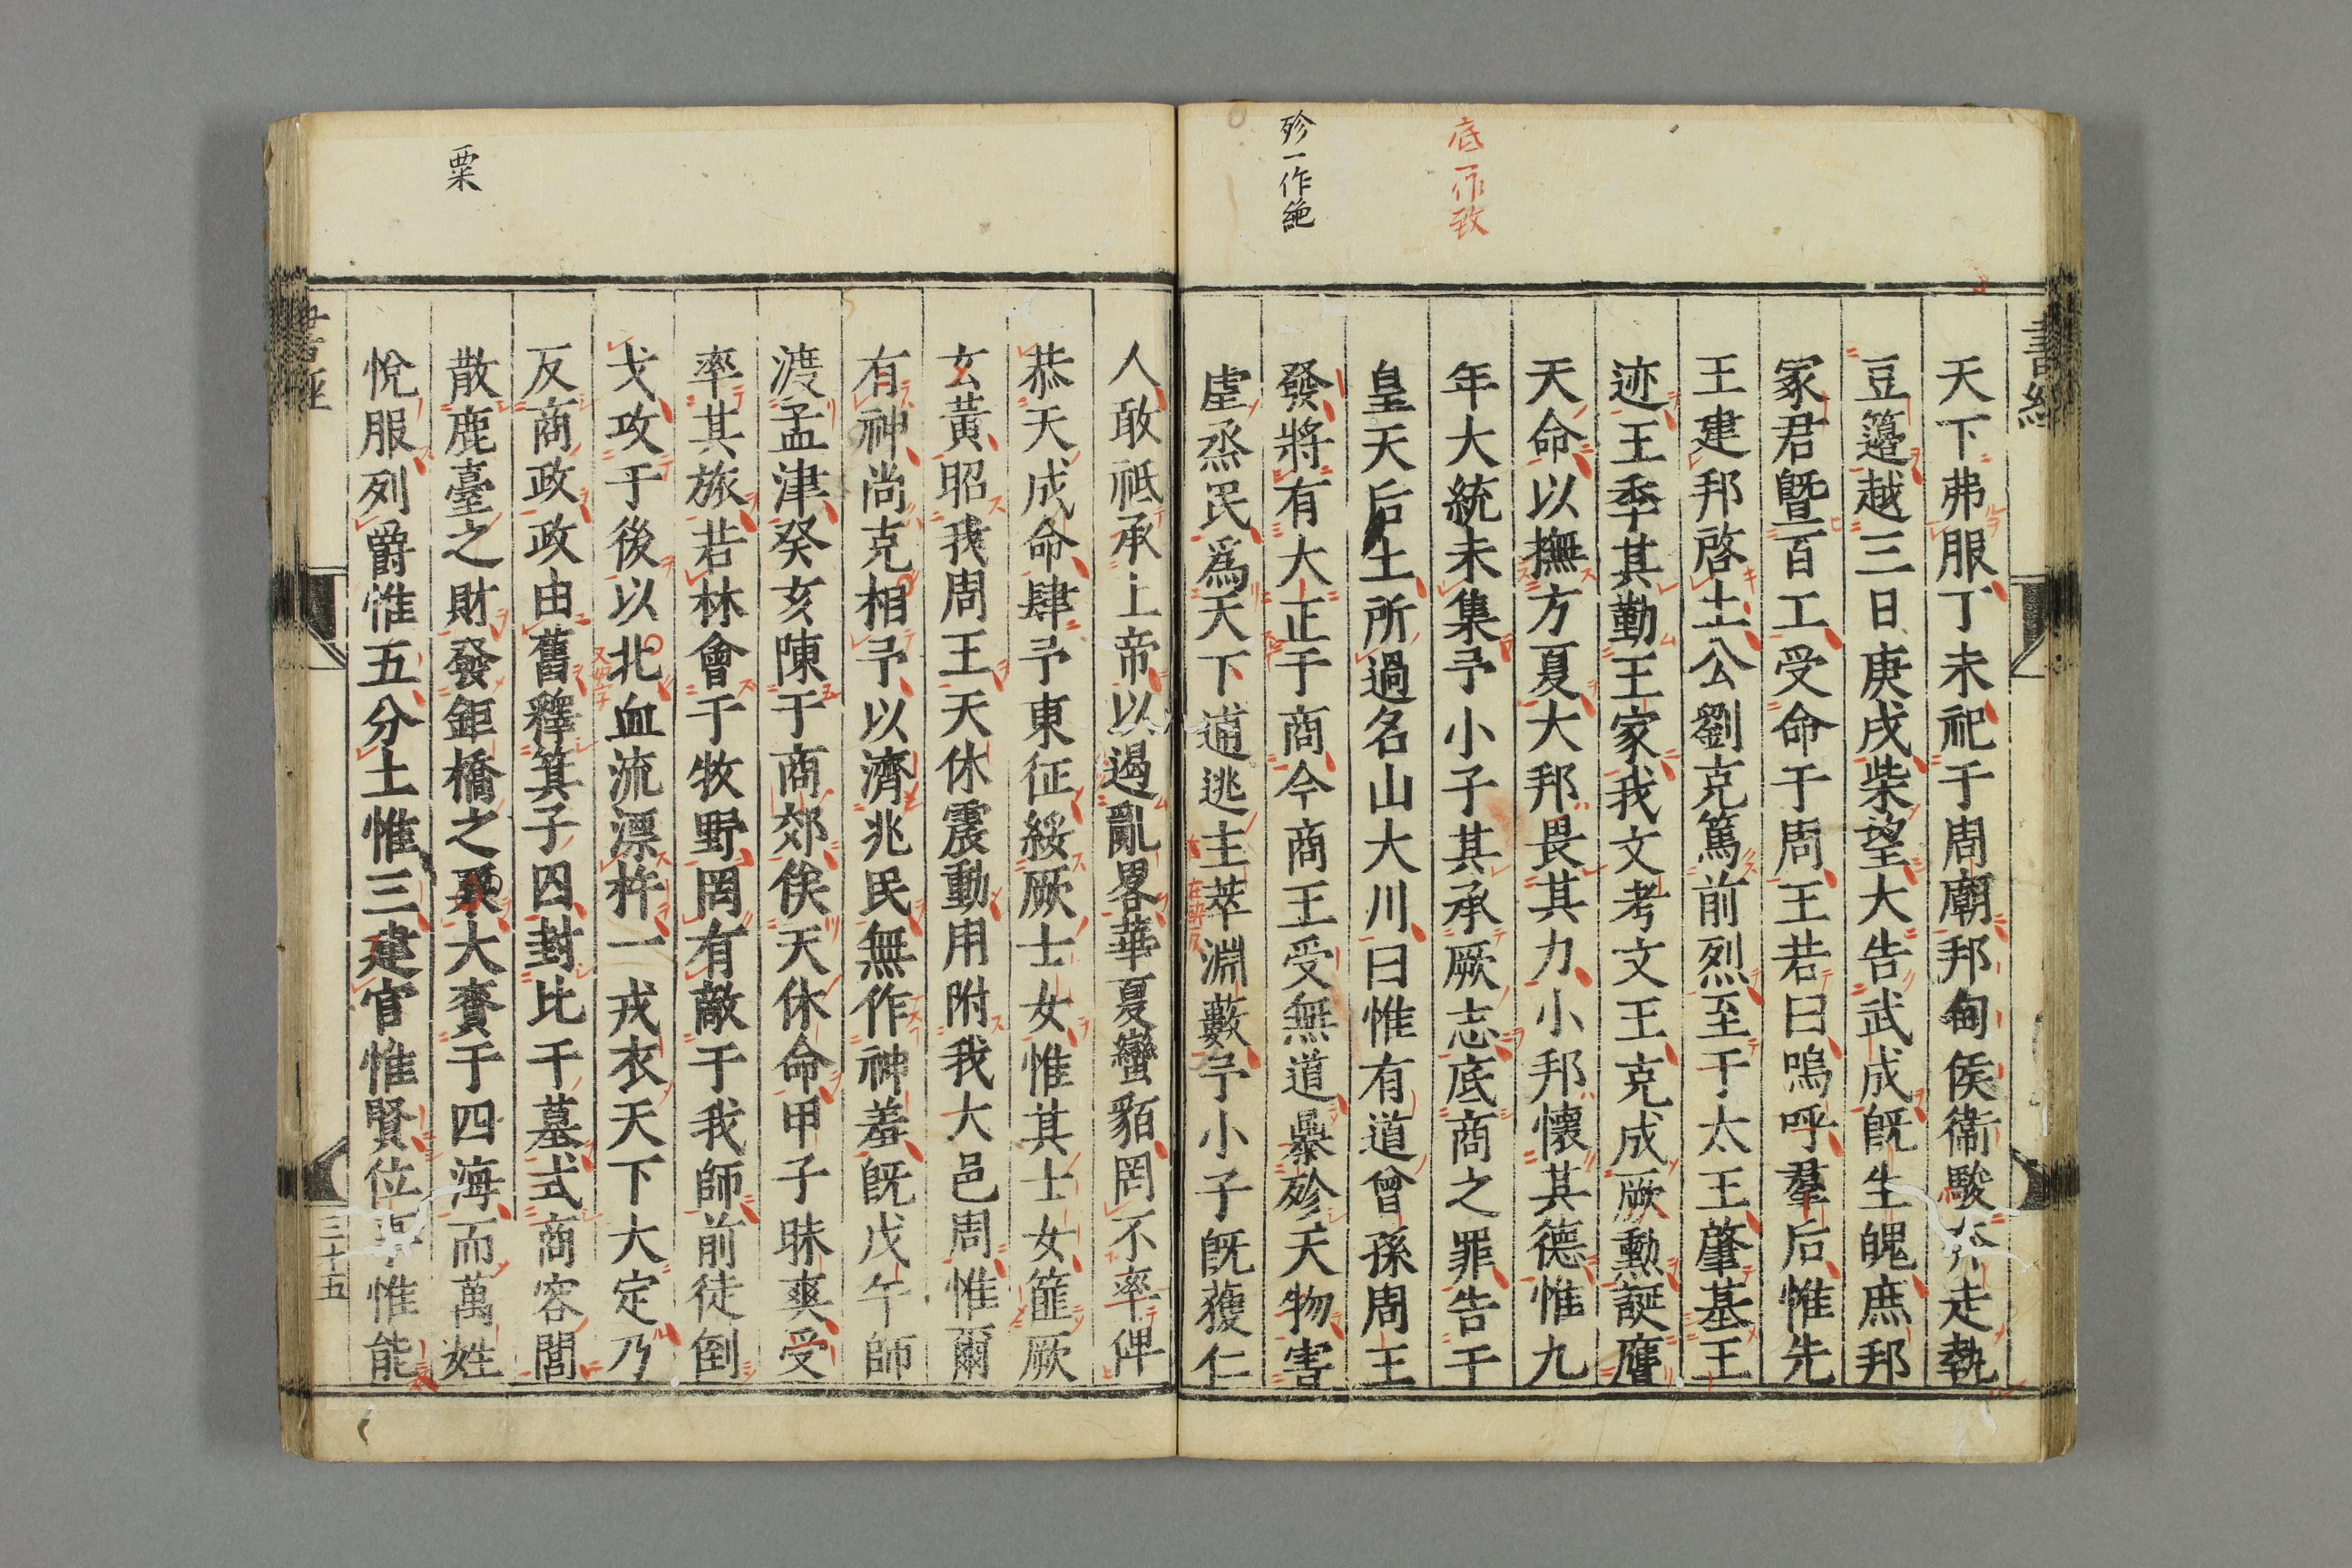 底一作致
殄一作絶
書經
天下弗服丁未祀于周廟邦甸侯衞駿奔走執
豆籩越三日庚戌柴望大告武成旣生魄庶邦
冢君曁百工受命于周王若曰嗚呼羣后惟先
王建邦啓土公劉克篤前烈至于太王肇基王
迹王季其勤王家我文考文王克成厥勳誕膺
天命以撫方夏大邦畏其力小邦懷其德惟九
年大統未集予小子其承厥志底商之罪告于
皇天后土所過名山大川曰惟有道曾孫周王
發將有大正于商今商王受無道暴殄天物害
虐烝民爲天下逋逃主萃淵藪予小子旣獲仁
粟
人敢祗承上帝以遏亂畧華夏蠻貊罔不率俾
恭天成命肆予東征綏厥士女惟其士女篚厥
玄黃昭我周王天休震動用附我大邑周惟爾
有神尚克相予以濟兆民無作神羞旣戊午師
渡孟津癸亥陳于商郊俟天休命甲子昧爽受
率其旅若林會于牧野罔有敵于我師前徒倒
戈攻于後以北血流漂杵一戎衣天下大定乃
反商政政由舊釋箕子囚封比干墓式商容閭
散鹿臺之財發鉅橋之大賚于四海而萬姓
悅服列爵惟五分土惟三建官惟賢位事惟能
書經
三十五